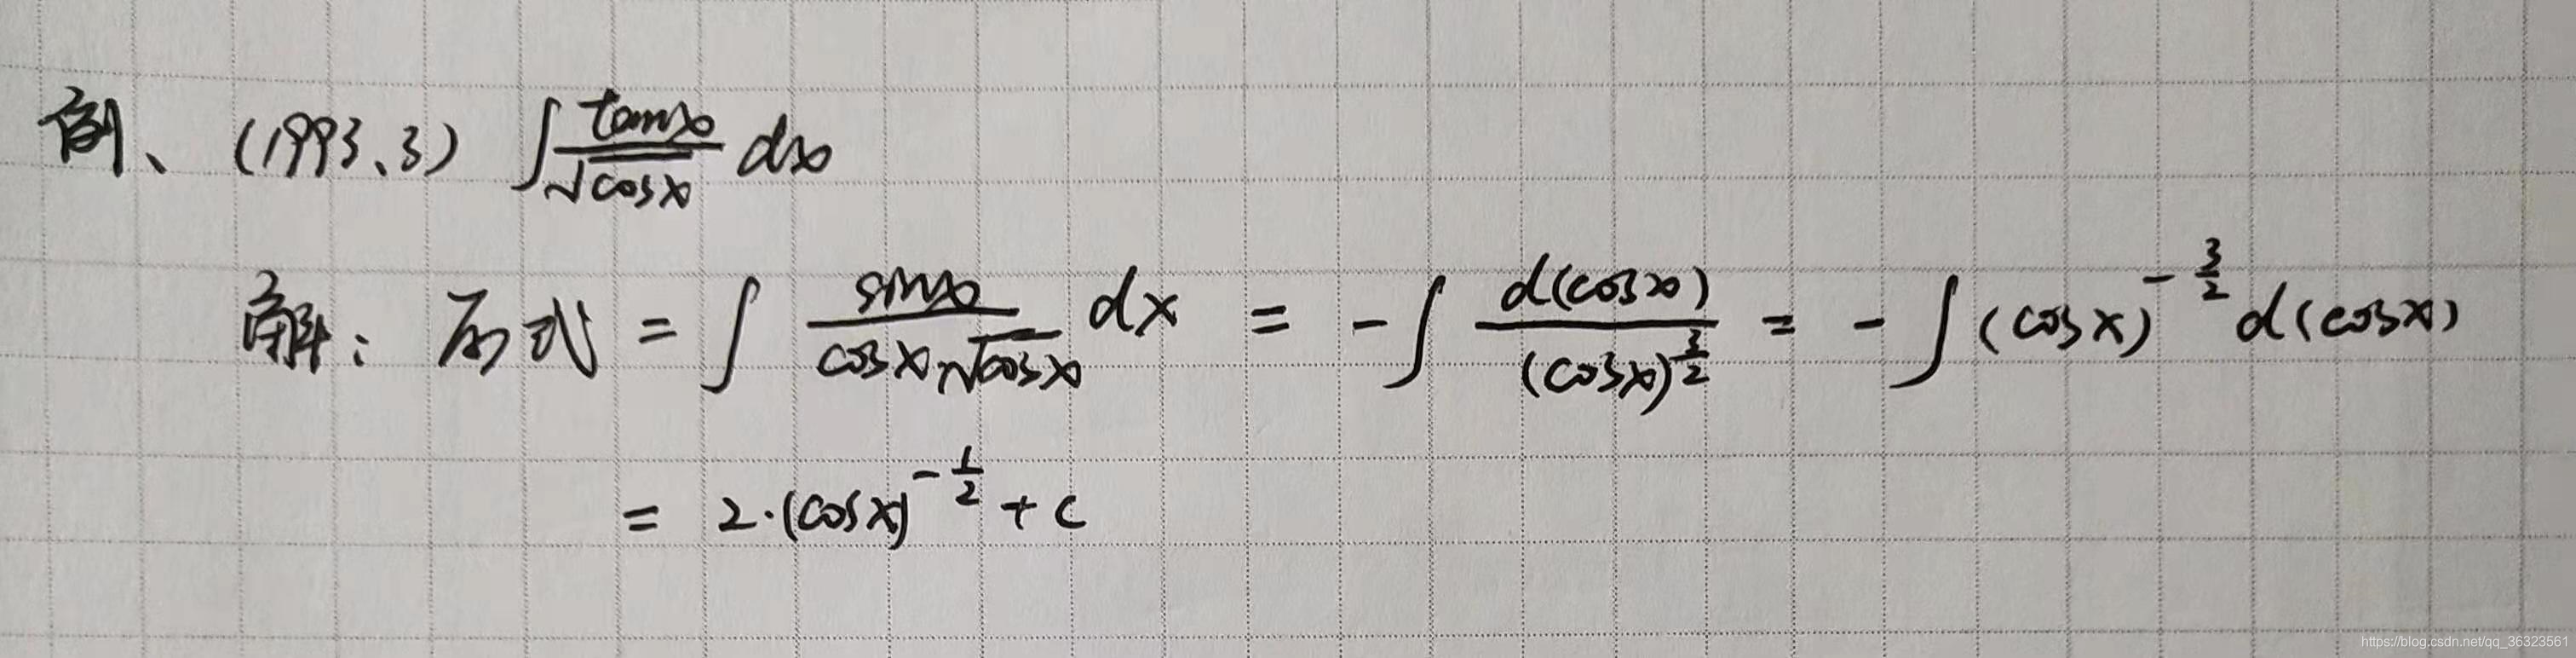 例、(1993、3) ∫ tanx/√cosx dx
解：原式 = ∫ sinx/(cosx√cosx) dx = -∫ d(cosx)/(cosx)^(3/2) = -∫(cosx)^(-3/2) d(cosx)
= 2·(cosx)^(-1/2) + C
https://blog.csdn.net/qq_36323561